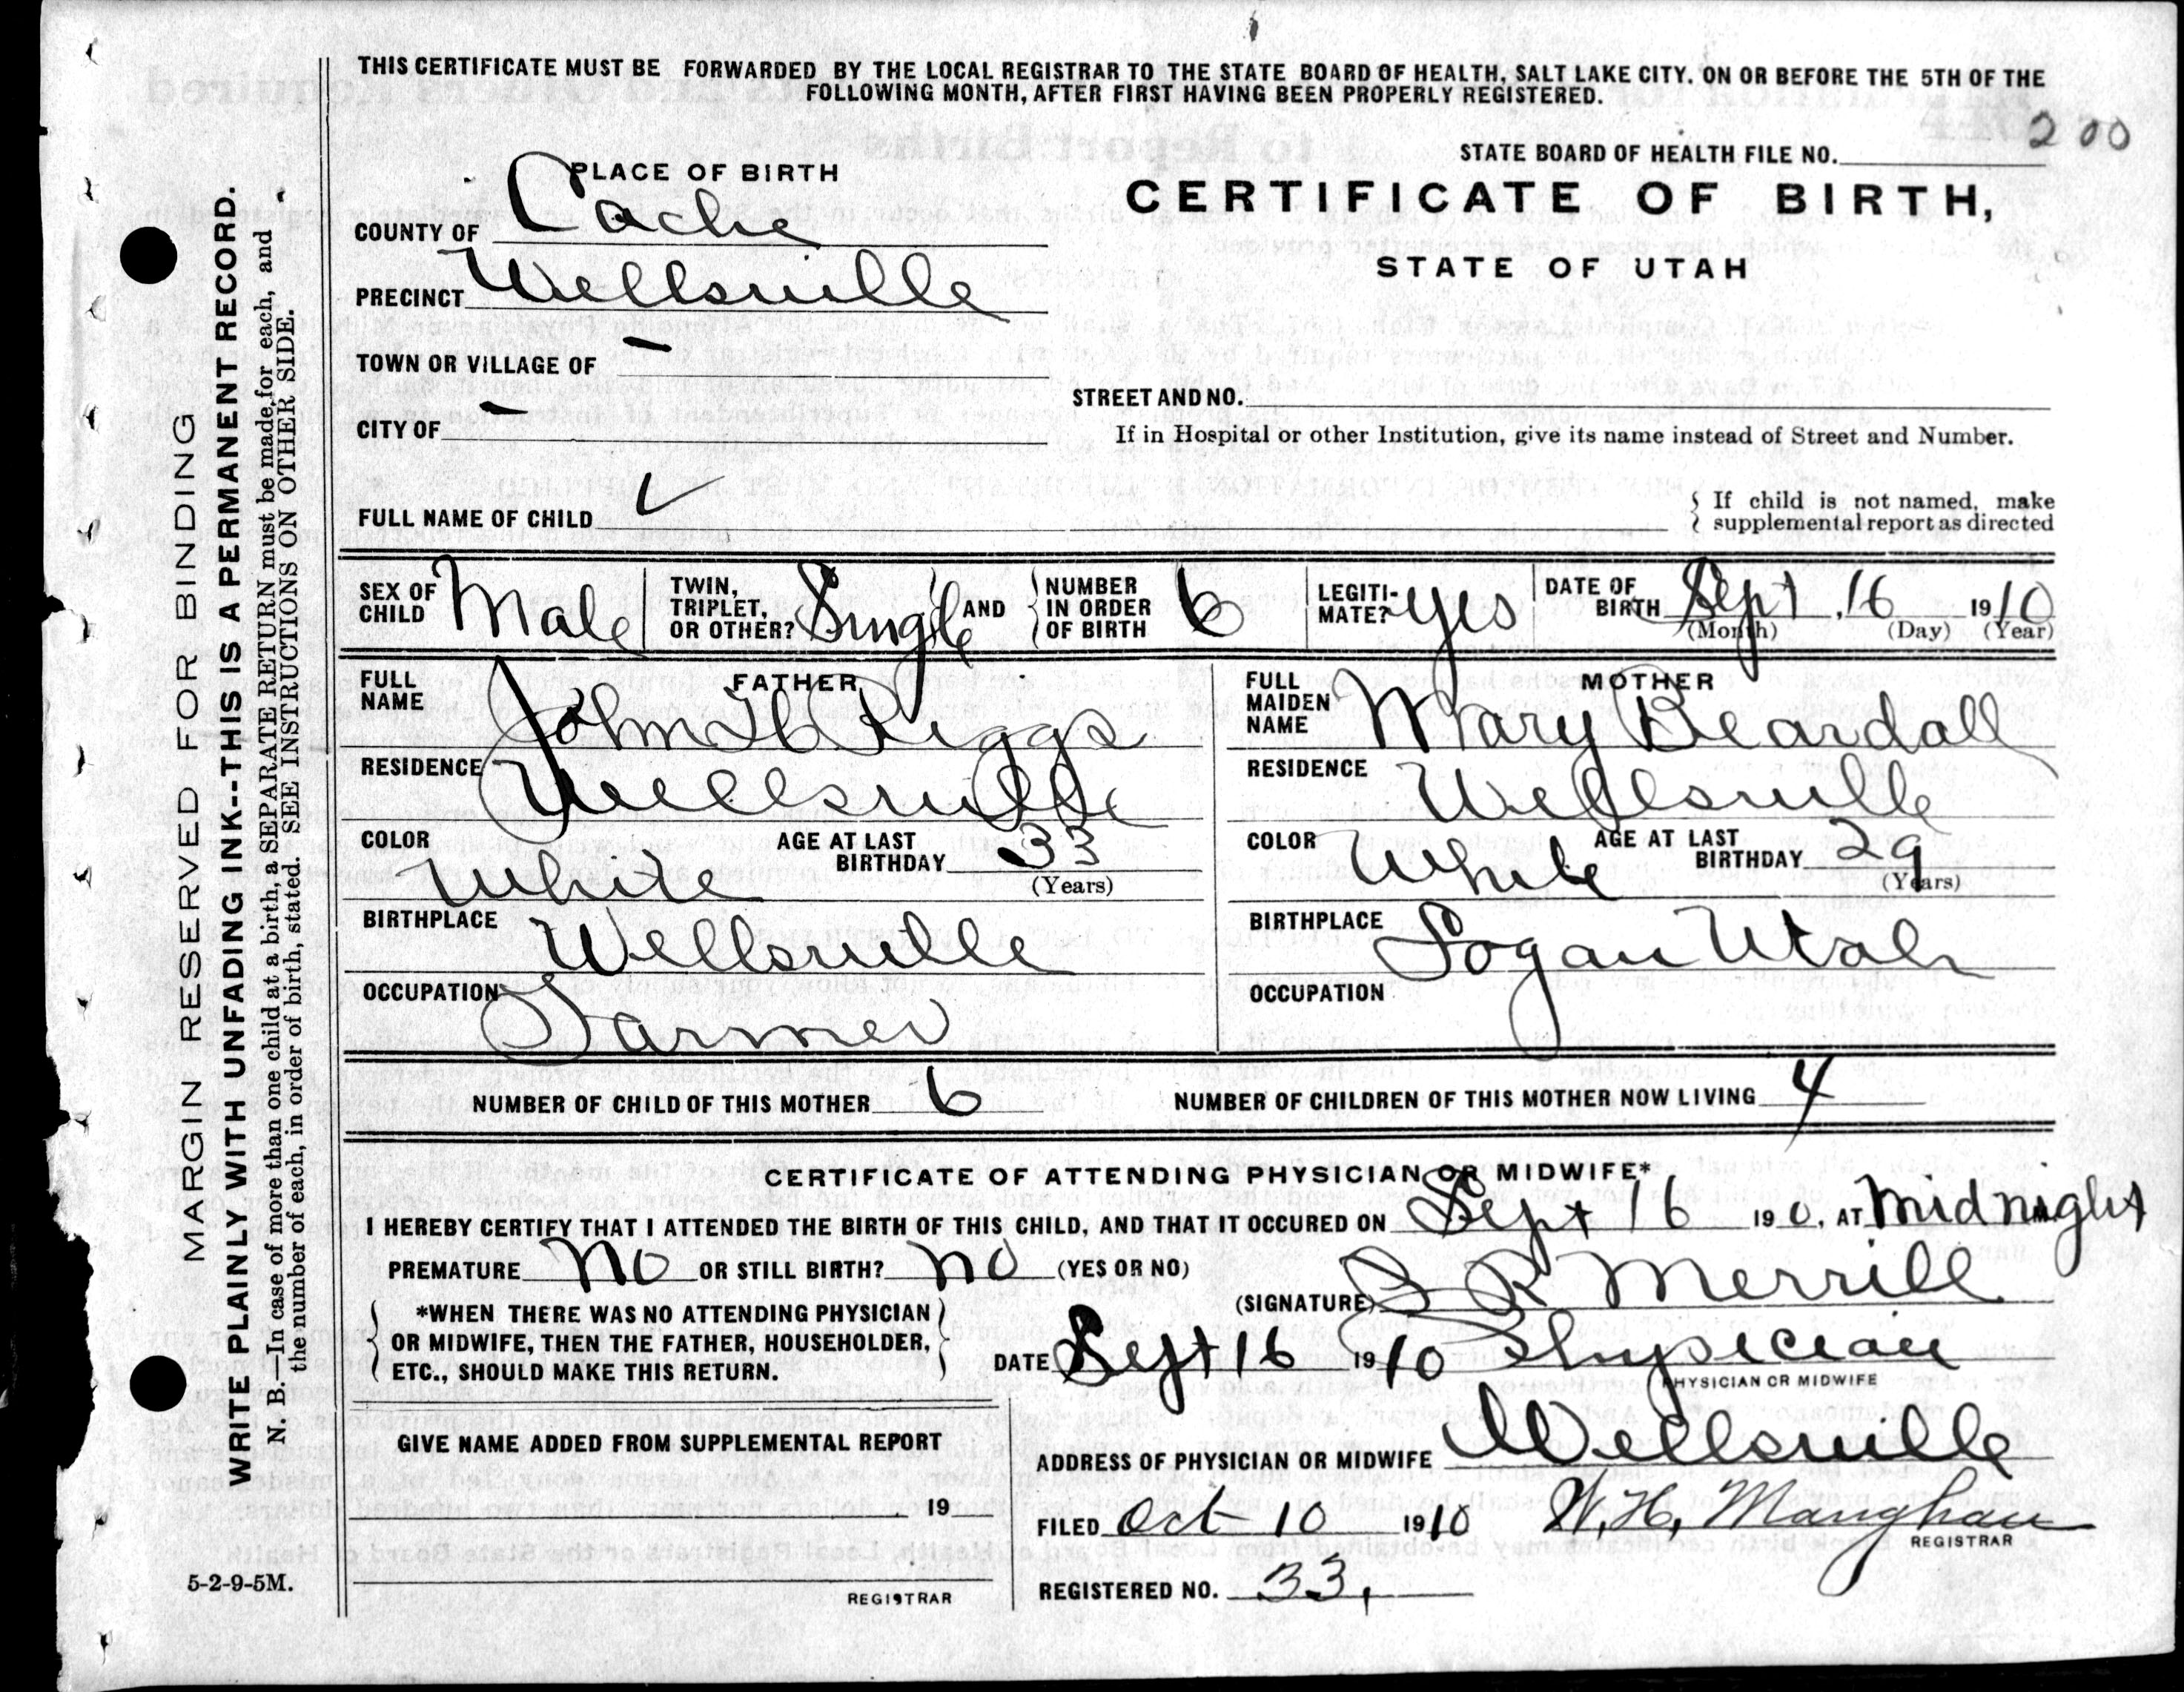 THIS CERTIFICATE MUST BE FORWARDED BY THE LOCAL REGISTRAR TO THE STATE BOARD OF HEALTH, SALT LAKE CITY. ON OR BEFORE THE 5TH OF THE
FOLLOWING MONTH, AFTER FIRST HAVING BEEN PROPERLY REGISTERED.
STATE BOARD OF HEALTH FILE NO. 200
PLACE OF BIRTH
CERTIFICATE OF BIRTH,
STATE OF UTAH
COUNTY OF Cache
PRECINCT Wellsville
TOWN OR VILLAGE OF —
STREET AND NO.
CITY OF —
If in Hospital or other Institution, give its name instead of Street and Number.
FULL NAME OF CHILD
If child is not named, make
supplemental report as directed
SEX OF CHILD Male TWIN, TRIPLET, OR OTHER? Single AND NUMBER IN ORDER OF BIRTH 6 LEGITI-MATE? yes DATE OF BIRTH Sept 16 1910
(Month) (Day) (Year)
FATHER
FULL NAME John Riggs
RESIDENCE Wellsville
COLOR White AGE AT LAST BIRTHDAY 33
(Years)
BIRTHPLACE Wellsville
OCCUPATION Farmer
MOTHER
FULL MAIDEN NAME Mary Beardall
RESIDENCE Wellsville
COLOR White AGE AT LAST BIRTHDAY 29
(Years)
BIRTHPLACE Logan Utah
OCCUPATION
NUMBER OF CHILD OF THIS MOTHER 6 NUMBER OF CHILDREN OF THIS MOTHER NOW LIVING 4
CERTIFICATE OF ATTENDING PHYSICIAN OR MIDWIFE*
I HEREBY CERTIFY THAT I ATTENDED THE BIRTH OF THIS CHILD, AND THAT IT OCCURED ON Sept 16 190, AT Midnight M.
PREMATURE No OR STILL BIRTH? no (YES OR NO)
(SIGNATURE) R Merrill
*WHEN THERE WAS NO ATTENDING PHYSICIAN
OR MIDWIFE, THEN THE FATHER, HOUSEHOLDER,
ETC., SHOULD MAKE THIS RETURN.
DATE Sept 16 1910 Physician
PHYSICIAN OR MIDWIFE
GIVE NAME ADDED FROM SUPPLEMENTAL REPORT
19
REGISTRAR
ADDRESS OF PHYSICIAN OR MIDWIFE Wellsville
FILED Oct 10 1910 W. H. Maughan
REGISTRAR
REGISTERED NO. 33,
5-2-9-5M.
MARGIN RESERVED FOR BINDING
WRITE PLAINLY WITH UNFADING INK--THIS IS A PERMANENT RECORD.
N. B.—In case of more than one child at a birth, a SEPARATE RETURN must be made for each, and
the number of each, in order of birth, stated. SEE INSTRUCTIONS ON OTHER SIDE.